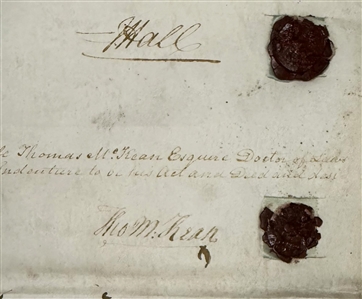 Hall
Thomas McKean Esquire Doctor of Laws
Indenture to be his Act and Deed and
Tho McKean